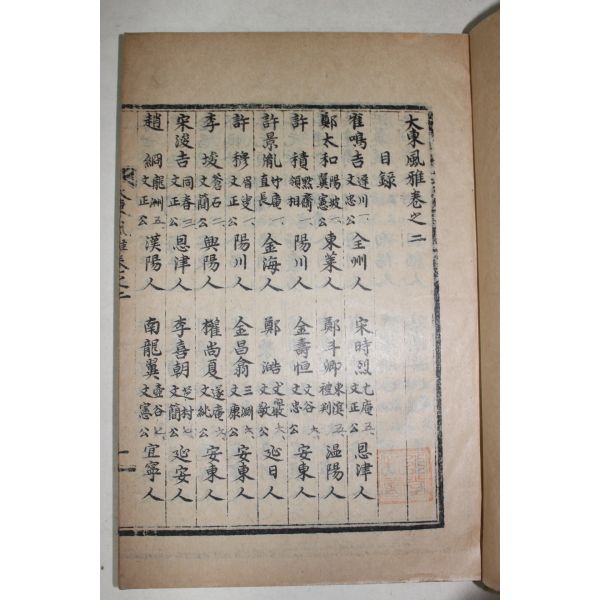 大東風雅卷之二
目録
崔鳴吉 遲川一 文忠公 全州人 宋時烈 尤庵五 文正公 恩津人
鄭太和 陽坡一 翼憲公 東萊人 鄭斗卿 東溟五 禮判 温陽人
許積 默齋一 領相 陽川人 金壽恒 文谷六 文忠公 安東人
許景胤 竹庵一 直長 金海人 鄭澔 丈巖六 文敬公 延日人
許穆 眉叟一 文正公 陽川人 金昌翕 三淵六 文康公 安東人
李埈 蒼石二 文簡公 興陽人 權尚夏 遂庵六 文純公 安東人
宋浚吉 同春二 文正公 恩津人 李喜朝 芝村七 文簡公 延安人
趙絅 龍洲五 文簡公 漢陽人 南龍翼 壺谷七 文憲公 宜寧人